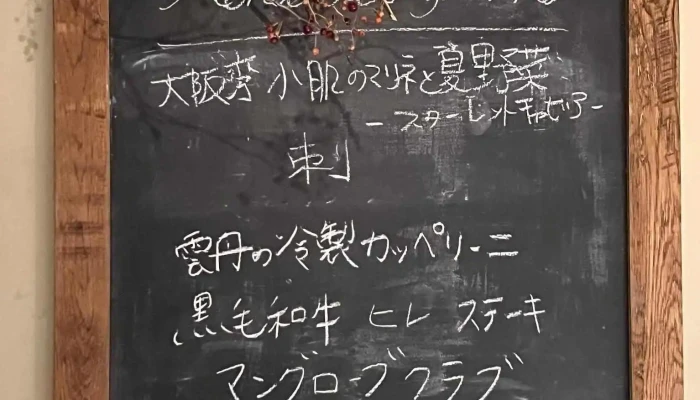 大阪湾 小肌のマリネと夏野菜
-スターレットキャビア-
刺
雲丹の冷製カッペリーニ
黒毛和牛 ヒレ ステーキ
マングローブクラブ